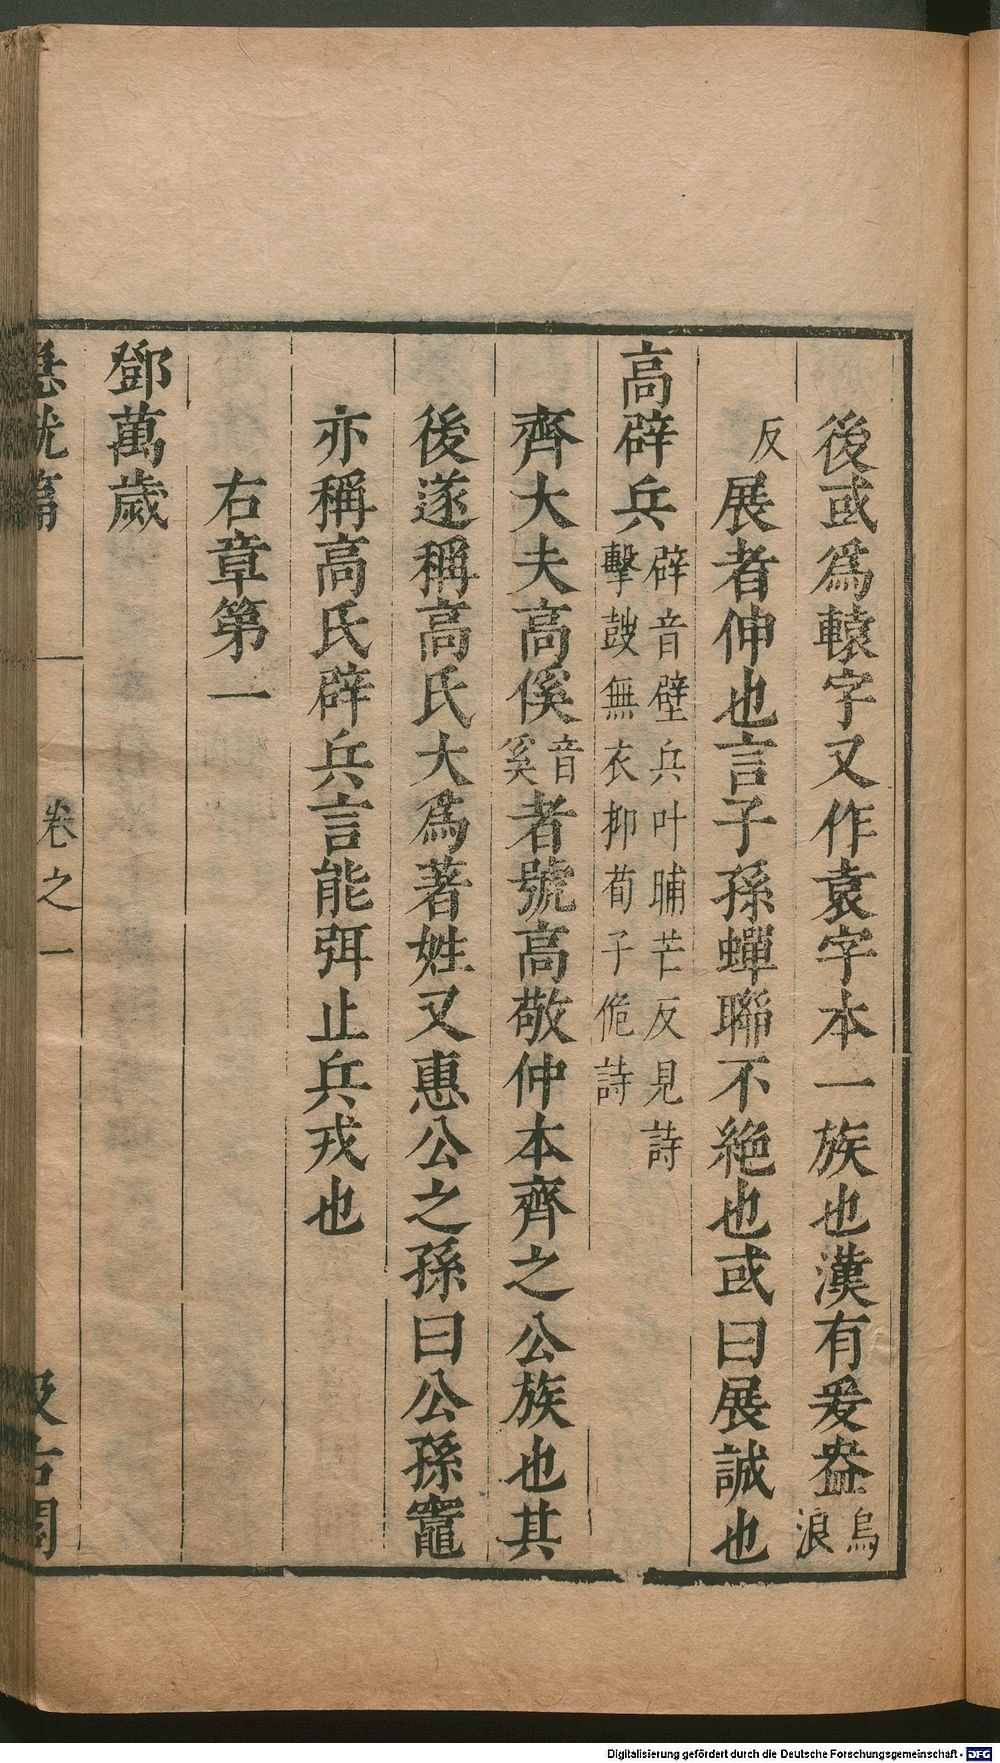 後或爲轅字又作袁字本一族也漢有爰盎烏浪
反展者伸也言子孫蟬聯不絶也或曰展誠也
高辟兵辟音壁兵叶晡芒反見詩擊鼓無衣抑荀子佹詩
齊大夫高傒音奚者號高敬仲本齊之公族也其
後遂稱高氏大爲著姓又惠公之孫曰公孫竈
亦稱高氏辟兵言能弭止兵戎也
右章第一
鄧萬歲
急就篇 卷之一 汲古閣
Digitalisierung gefördert durch die Deutsche Forschungsgemeinschaft - DFG